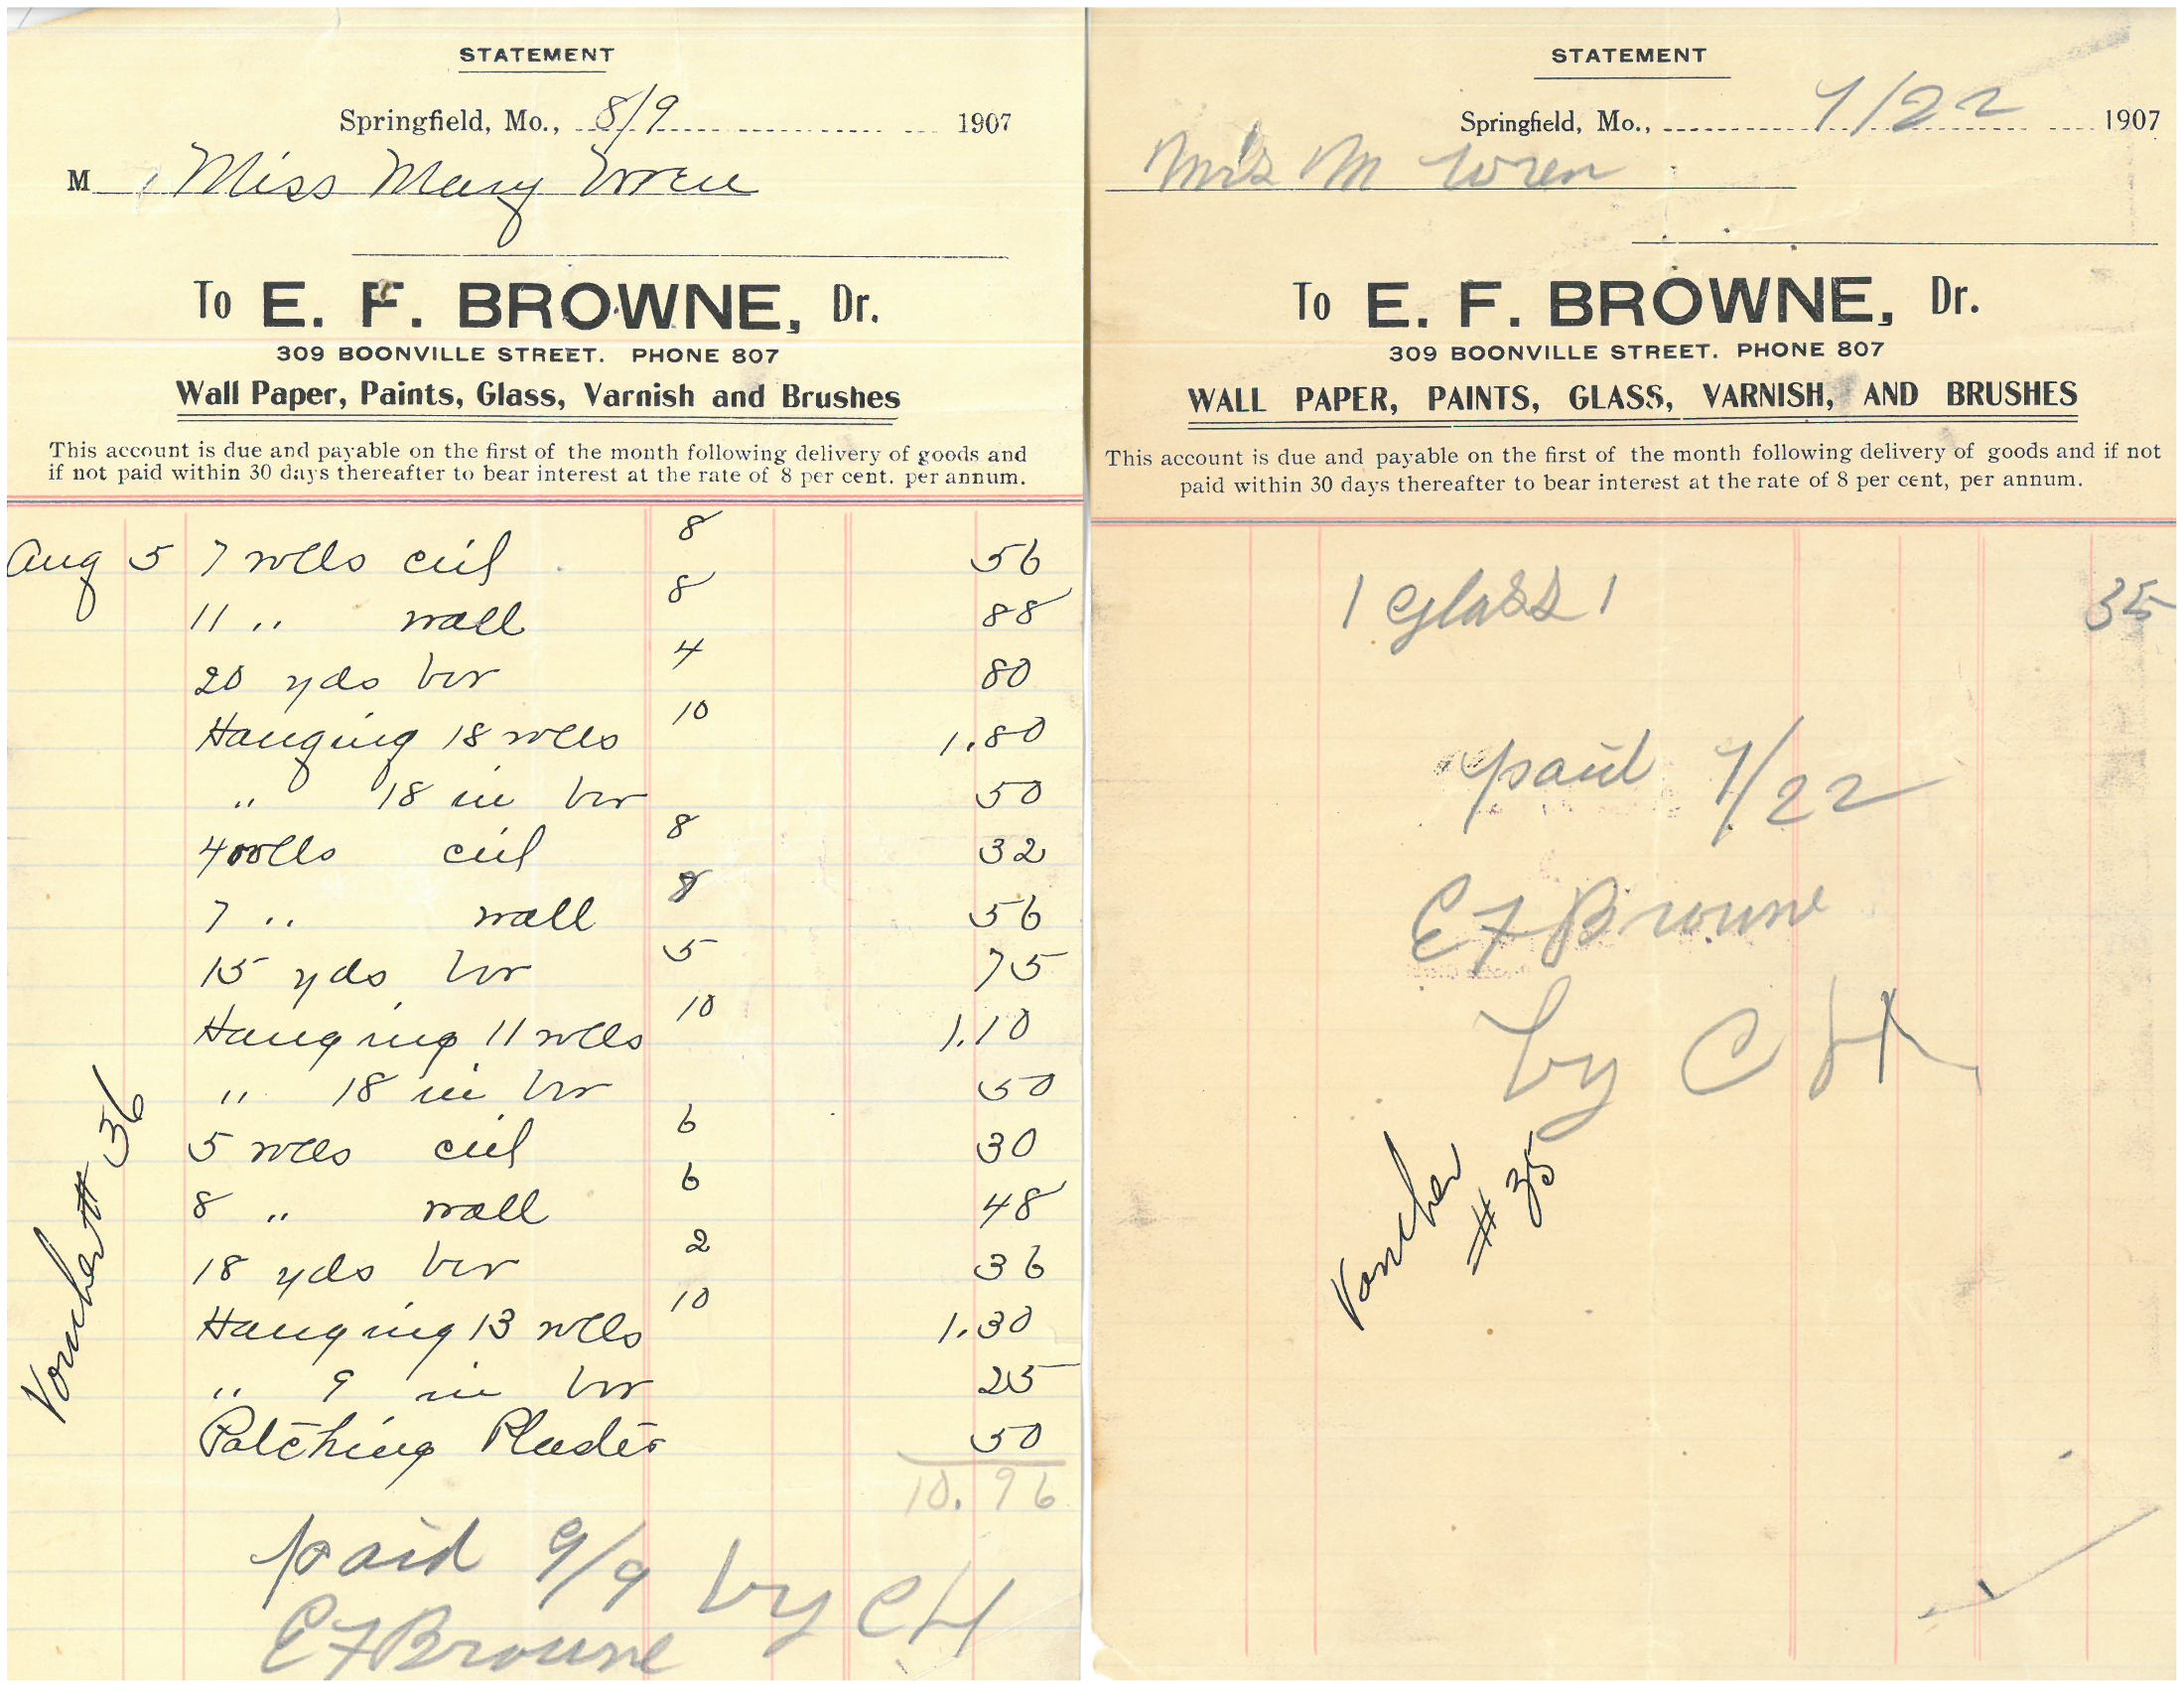 STATEMENT
Springfield, Mo., 8/9 1907
M Miss Mary Wren
To E. F. BROWNE, Dr.
309 BOONVILLE STREET. PHONE 807
Wall Paper, Paints, Glass, Varnish and Brushes
This account is due and payable on the first of the month following delivery of goods and
if not paid within 30 days thereafter to bear interest at the rate of 8 per cent. per annum.
Aug 5 7 rolls ceil 8 56
11 " wall 8 88
20 yds bor 4 80
Hanging 18 rolls 10 1.80
" 18 in bor 50
4 rolls ceil 8 32
7 " wall 8 56
15 yds bor 5 75
Hanging 11 rolls 10 1.10
" 18 in bor 50
5 rolls ceil 6 30
8 " wall 6 48
18 yds bor 2 36
Hanging 13 rolls 10 1.30
" 9 in bor 25
Patching Plaster 50
10.96
paid 9/9 by CH
EF Browne
Voucher # 36
STATEMENT
Springfield, Mo., 7/22 1907
Mrs M Wren
To E. F. BROWNE, Dr.
309 BOONVILLE STREET. PHONE 807
WALL PAPER, PAINTS, GLASS, VARNISH, AND BRUSHES
This account is due and payable on the first of the month following delivery of goods and if not
paid within 30 days thereafter to bear interest at the rate of 8 per cent, per annum.
1 glass 1 35
paid 7/22
EF Browne
by CH
Voucher
# 35